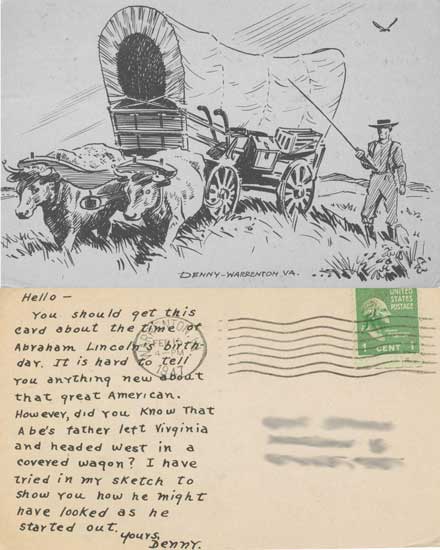 DENNY-WARRENTON VA.
Hello -
You should get this
card about the time of
Abraham Lincoln's birth-
day. It is hard to tell
you anything new about
that great American.
However, did you know that
Abe's father left Virginia
and headed west in a
covered wagon? I have
tried in my sketch to
show you how he might
have looked as he
started out.
Yours,
Denny.
WARRENTON
FEB
PM
1947
UNITED
STATES
POSTAGE
1 CENT 1